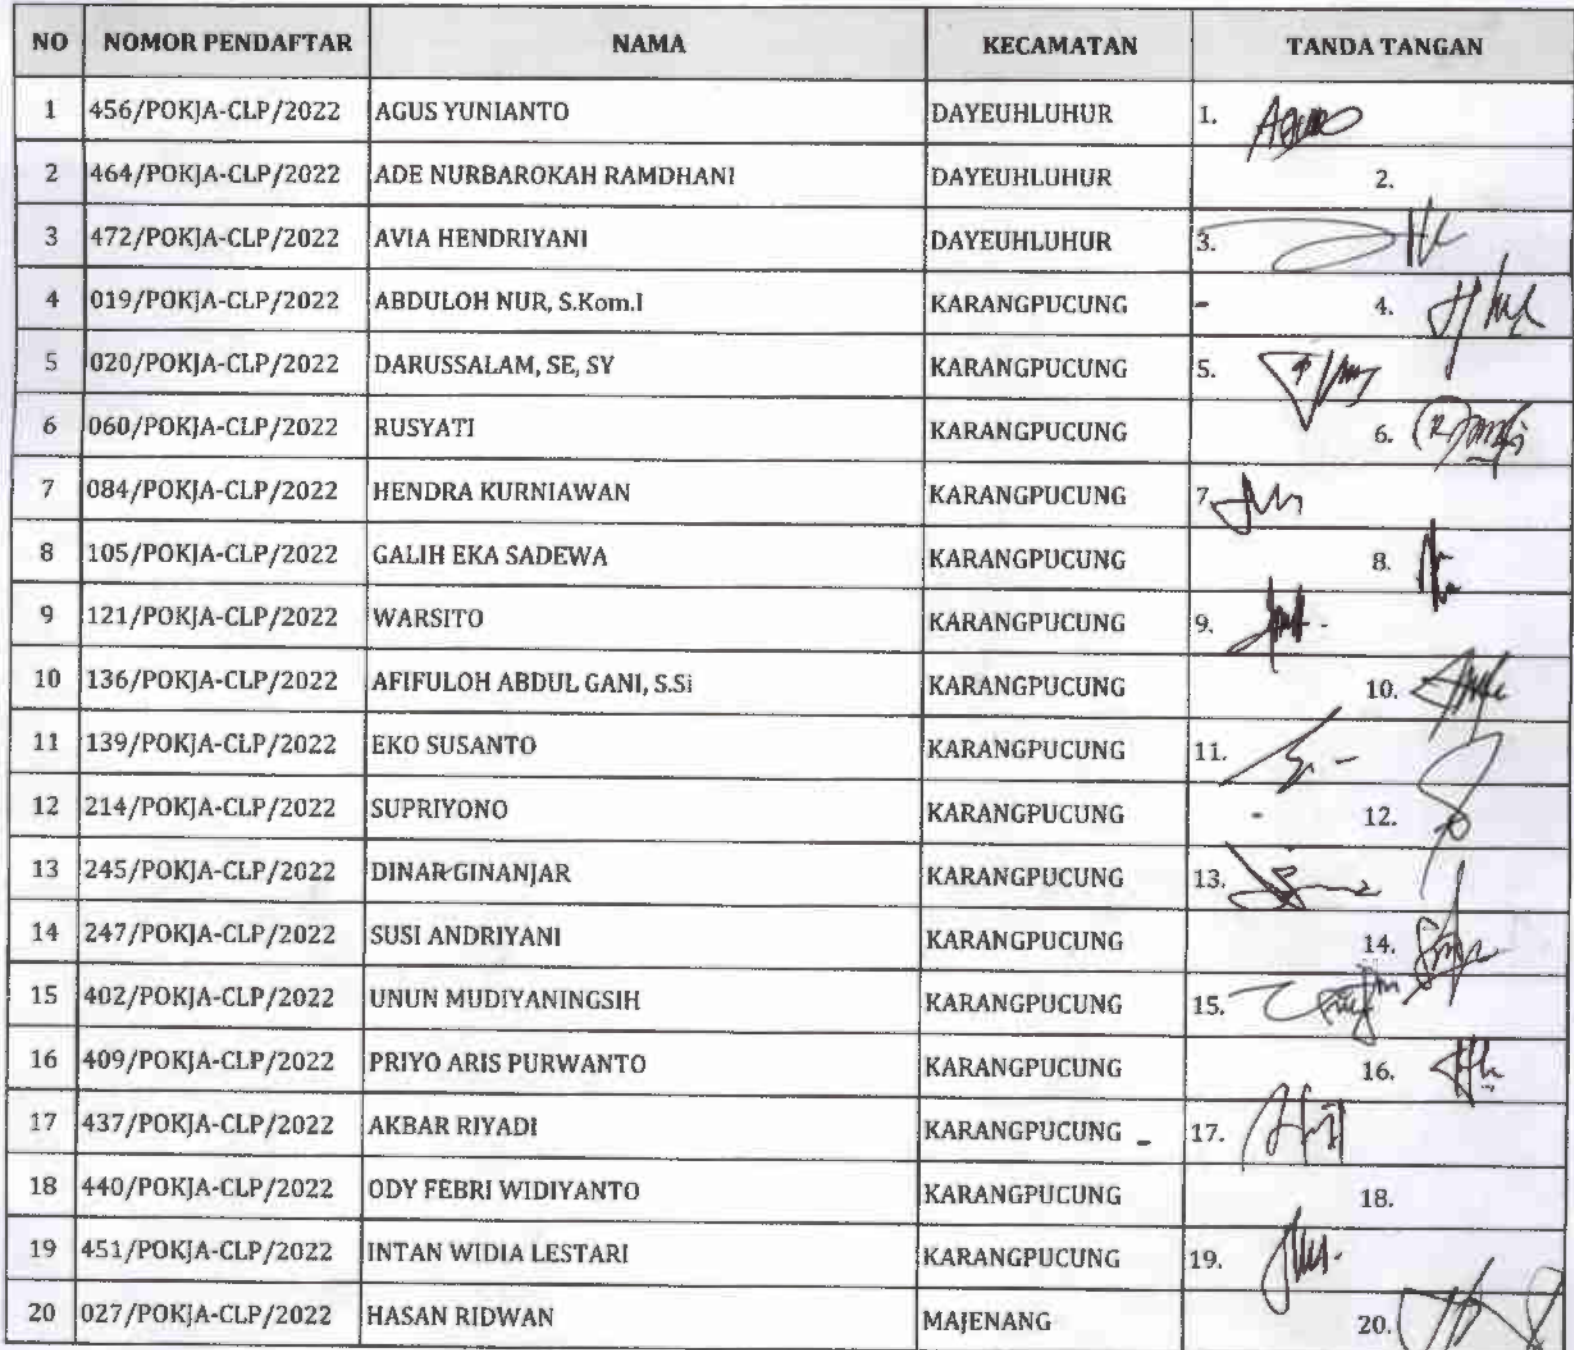 NO NOMOR PENDAFTAR NAMA KECAMATAN TANDA TANGAN
1 456/POKJA-CLP/2022 AGUS YUNIANTO DAYEUHLUHUR 1.
2 464/POKJA-CLP/2022 ADE NURBAROKAH RAMDHANI DAYEUHLUHUR 2.
3 472/POKJA-CLP/2022 AVIA HENDRIYANI DAYEUHLUHUR 3.
4 019/POKJA-CLP/2022 ABDULOH NUR, S.Kom.I KARANGPUCUNG 4.
5 020/POKJA-CLP/2022 DARUSSALAM, SE, SY KARANGPUCUNG 5.
6 060/POKJA-CLP/2022 RUSYATI KARANGPUCUNG 6.
7 084/POKJA-CLP/2022 HENDRA KURNIAWAN KARANGPUCUNG 7.
8 105/POKJA-CLP/2022 GALIH EKA SADEWA KARANGPUCUNG 8.
9 121/POKJA-CLP/2022 WARSITO KARANGPUCUNG 9.
10 136/POKJA-CLP/2022 AFIFULOH ABDUL GANI, S.Si KARANGPUCUNG 10.
11 139/POKJA-CLP/2022 EKO SUSANTO KARANGPUCUNG 11.
12 214/POKJA-CLP/2022 SUPRIYONO KARANGPUCUNG 12.
13 245/POKJA-CLP/2022 DINAR GINANJAR KARANGPUCUNG 13.
14 247/POKJA-CLP/2022 SUSI ANDRIYANI KARANGPUCUNG 14.
15 402/POKJA-CLP/2022 UNUN MUDIYANINGSIH KARANGPUCUNG 15.
16 409/POKJA-CLP/2022 PRIYO ARIS PURWANTO KARANGPUCUNG 16.
17 437/POKJA-CLP/2022 AKBAR RIYADI KARANGPUCUNG 17.
18 440/POKJA-CLP/2022 ODY FEBRI WIDIYANTO KARANGPUCUNG 18.
19 451/POKJA-CLP/2022 INTAN WIDIA LESTARI KARANGPUCUNG 19.
20 027/POKJA-CLP/2022 HASAN RIDWAN MAJENANG 20.